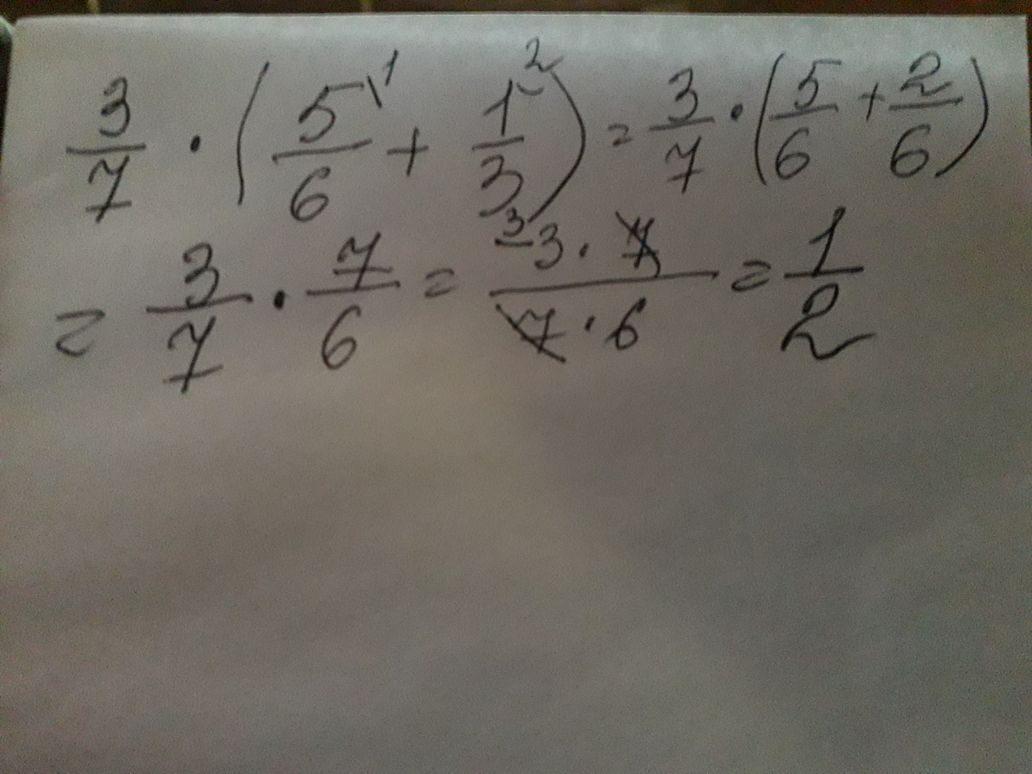 3/7 · (5\1/6 + 1\2/3) = 3/7 · (5/6 + 2/6)
= 3/7 · 7/6 = 3 3 · 7/7 · 6 = 1/2